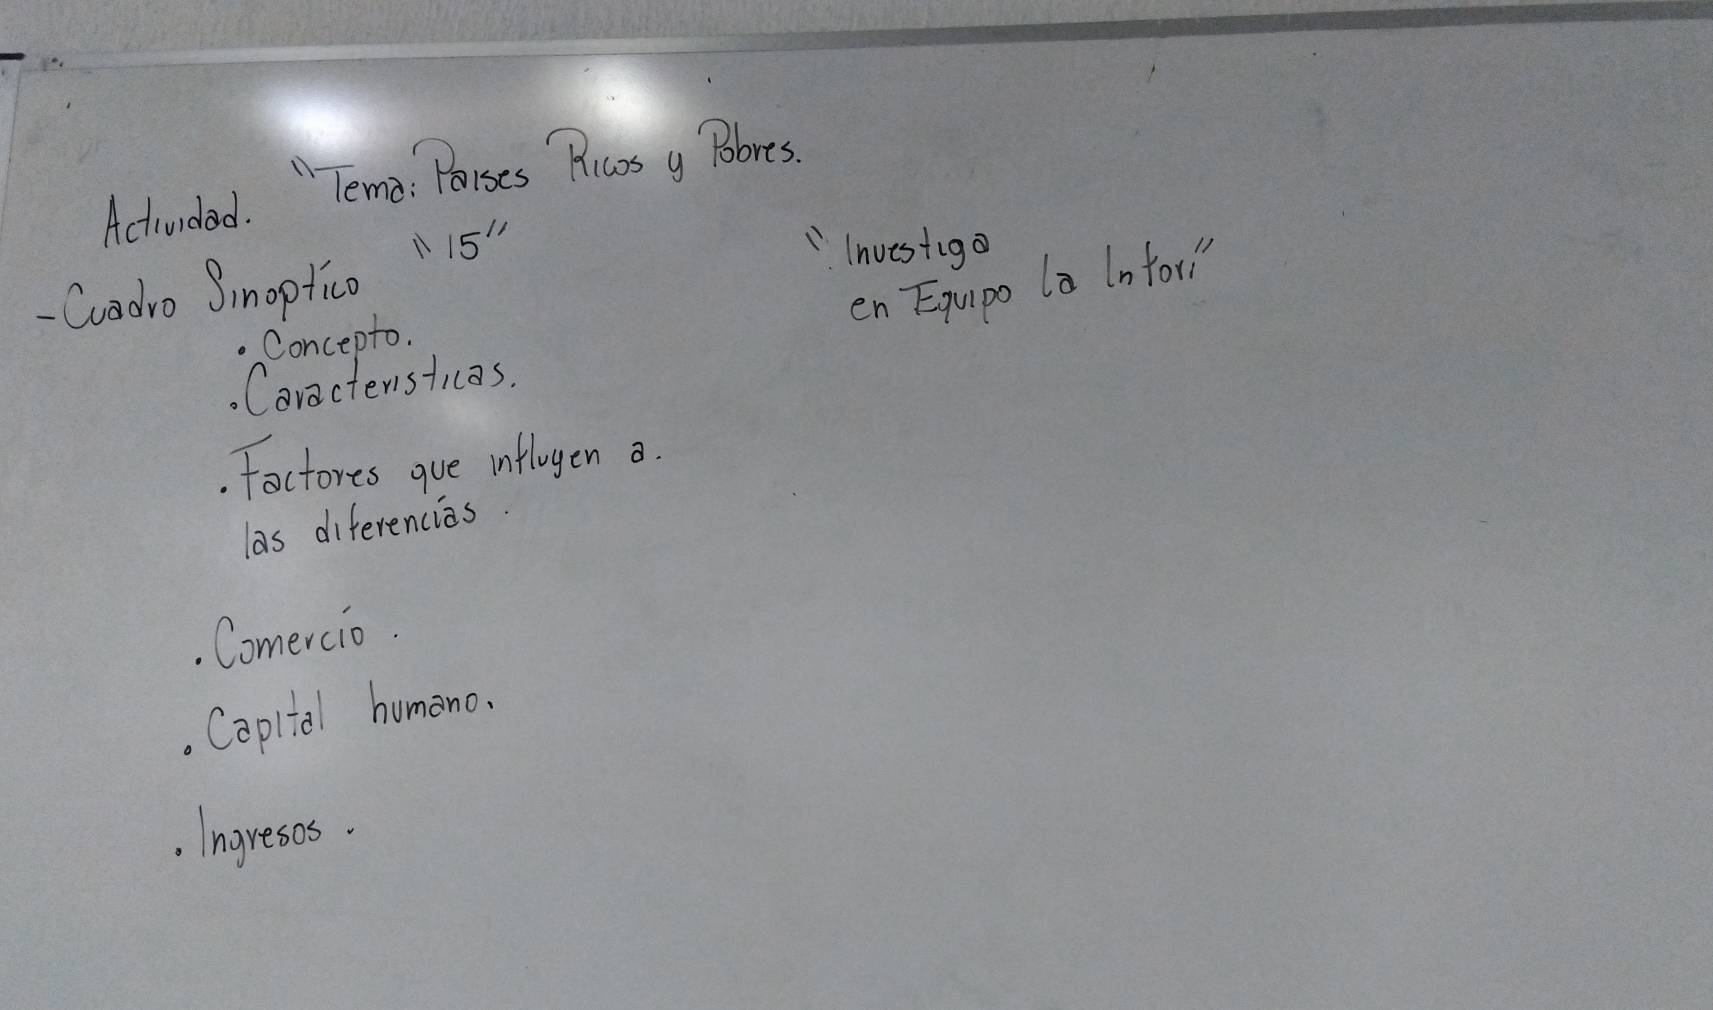 "Tema: Paises Ricos y Pobres.
Actividad.
"15"
-Cuadro Sinoptíco
• Concepto.
• Caracteristicas.
• Factores que influyen a.
las diferencías.
• Comercío.
• Capital humano.
• Ingresos.
"Investiga
en Equipo la Infor"